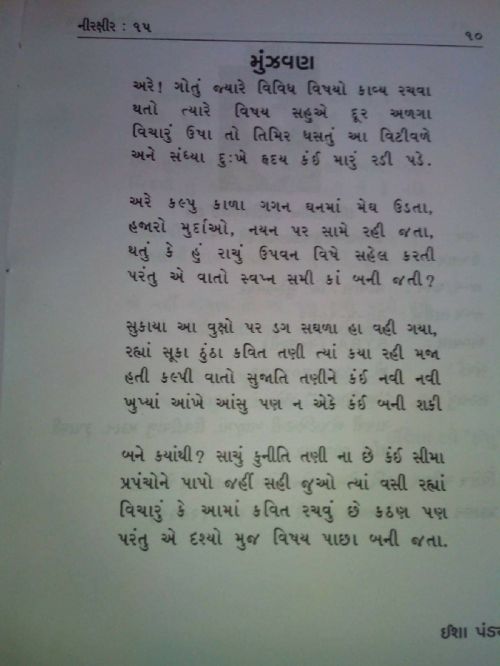 નીરક્ષીર : ૧૫
૧૦
મુંઝવણ
અરે! ગોતું જ્યારે વિવિધ વિષયો કાવ્ય રચવા
થતો ત્યારે વિષય સહુએ દૂર અળગા
વિચારું ઉષા તો તિમિર ધસતું આ વિટીવળે
અને સંધ્યા દુઃખે હ્રદય કંઈ મારું રડી પડે.
અરે કલ્પુ કાળા ગગન ઘનમાં મેઘ ઉડતા,
હજારો મુર્દાઓ, નયન પર સામે રહી જતા,
થતું કે હું રાચું ઉપવન વિષે સહેલ કરતી
પરંતુ એ વાતો સ્વપ્ન સમી કાં બની જતી?
સુકાયા આ વુક્ષો પર ડગ સઘળા હા વહી ગયા,
રહ્યાં સૂકા ઠુંઠા કવિત તણી ત્યાં કયા રહી મજા
હતી કલ્પી વાતો સુજાતિ તણીને કંઈ નવી નવી
ખુપ્યાં આંખે આંસુ પણ ન એકે કંઈ બની શકી
બને કયાંથી? સાચું કુનીતિ તણી ના છે કંઈ સીમા
પ્રપંચોને પાપો જહીં સહી જુઓ ત્યાં વસી રહ્યાં
વિચારું કે આમાં કવિત રચવું છે કઠણ પણ
પરંતુ એ દશ્યો મુજ વિષય પાછા બની જતા.
ઈશા